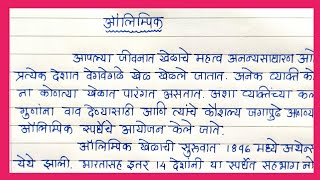 ऑलिम्पिक
आपल्या जीवनात खेळाचे महत्व अनन्यसाधारण
प्रत्येक देशात वेगवेगळे खेळ खेळले जातात. अनेक व्यक्ती
ना कोणत्या खेळात पारंगत असतात. अशा व्यक्तींच्या
गुणांना वाव देण्यासाठी आणि त्यांचे कौशल्य जगापुढे
ऑलिम्पिक स्पर्धेचे आयोजन केले जाते.
ऑलिम्पिक खेळाची सुरुवात 1896 मध्ये
येथे झाली. भारतासह इतर 14 देशांनी या स्पर्धेत सहभाग